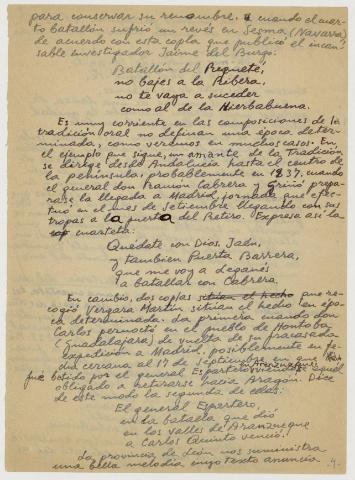 para conservar su renombre. Y cuando el cuarto batallón sufrió un revés en Sesma (Navarra)
de acuerdo con esta copla que publicó el incansable investigador Jaime del Burgo:
Batallón del Requeté,
no bajes a la Ribera,
no te vaya a suceder
como al de la Hierbabuena.
Es muy corriente en las composiciones de la
tradición oral no definan una época determinada, como veremos en muchos casos. En
el ejemplo que sigue, un amante de la Tradición
se dirige desde Andalucía hasta el centro de
la península, probablemente en 1837, cuando
el general don Ramon Cabrera y Griñó preparase la llegada a Madrid, jornada que efectuó en el mes de Setiembre llegando con sus
tropas a la puerta del Retiro. Expresa así la
cuarteta:
Quédate con Dios, Jaén,
y tambien Puerta Barrera,
que me voy a Leganés
a batallar con Cabrera.
En cambio, dos coplas sitúan el hecho que recogió Vergara Martín sitúan el hecho en época determinada. La primera cuando don
Carlos pernoctó en el pueblo de Hontoba
(Guadalajara) de vuelta de su fracasada
expedición a Madrid, posiblemente en fecha cercana al 17 de Septiembre en que
fué batido por el general Espartero en Aranzueque viéndose aquél
obligado a retirarse hacia Aragón. Dice
de este modo la segunda de ellas:
El general Espartero,
en la batalla que dió
en los valles de Aranzueque
a Carlos Quinto venció.
La provincia de León nos suministra
una bella melodía cuyo texto anuncia